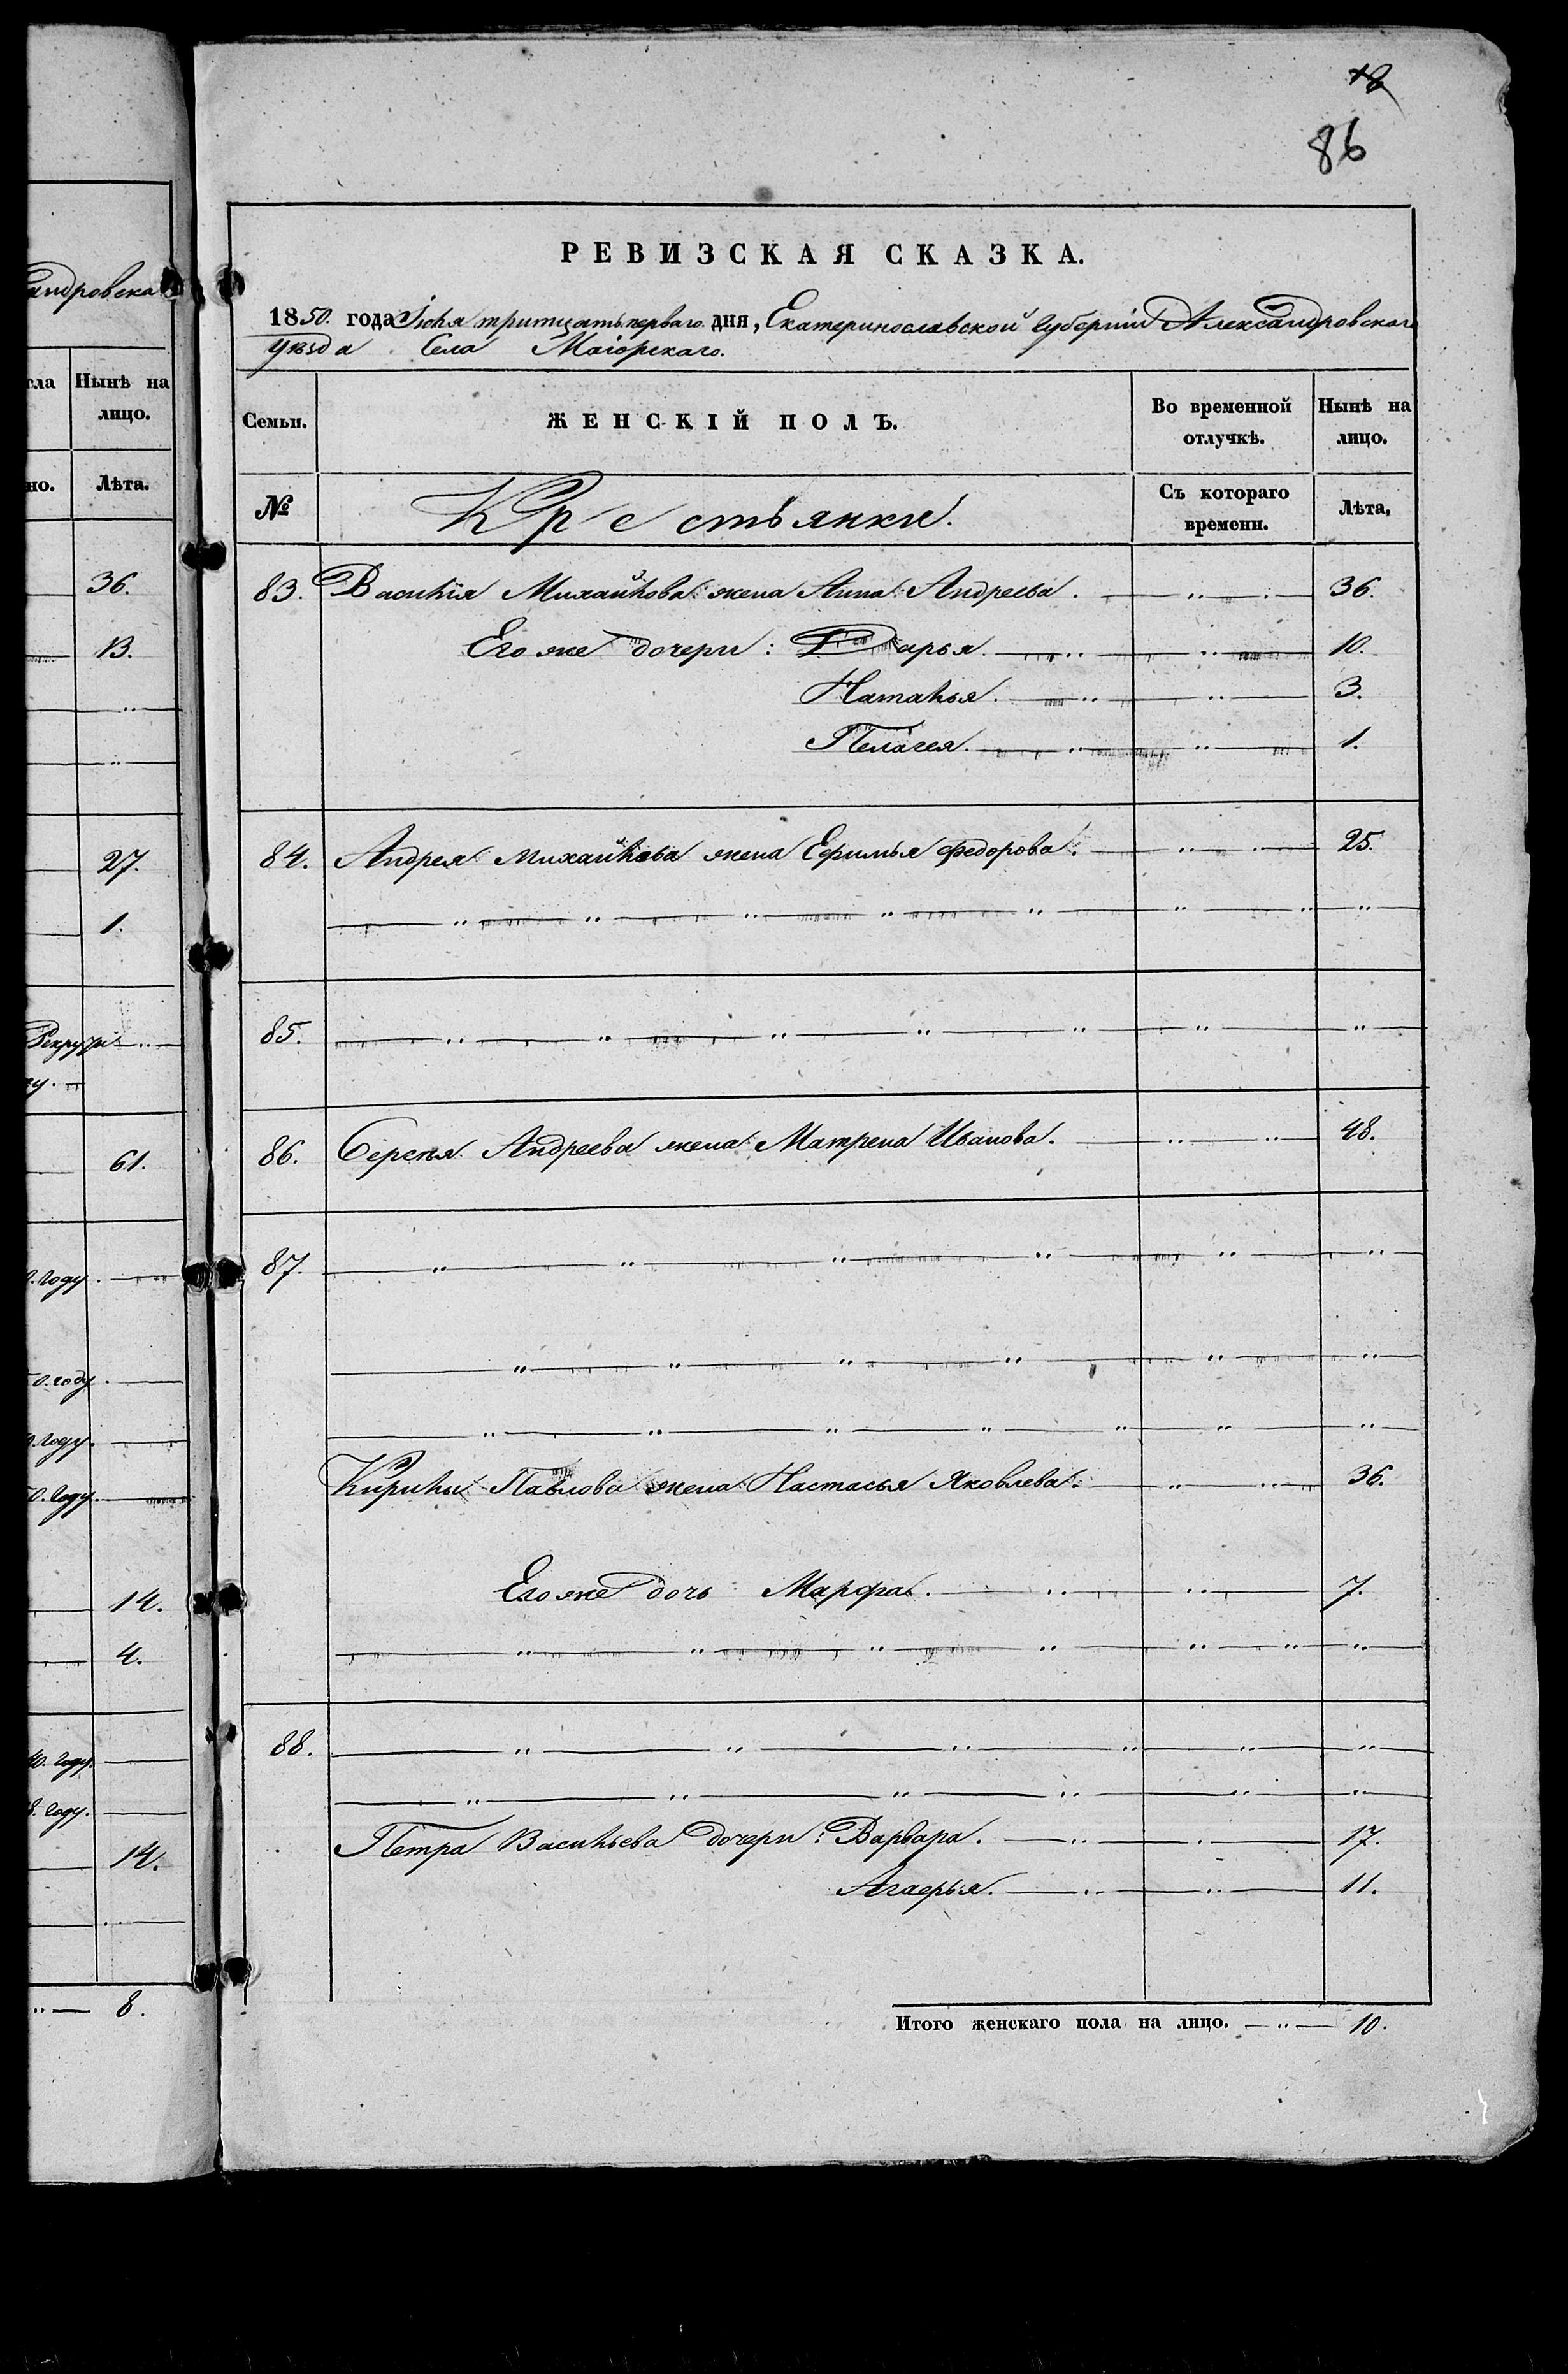 андровска
гла Нынѣ на
лицо.
но. Лѣта.
36.
13.
27.
1.
Рекру
61.
году.
0. году
году.
0. году.
14.
4.
40. году.
8. году.
14.
8.
86
РЕВИЗСКАЯ СКАЗКА.
1850. года Іюля тритцать перваго дня, Екатеринославской губерніи Александровскаго
уѣзда Села Маіорскаго.
Семьи. ЖЕНСКІЙ ПОЛЪ. Во временной отлучкѣ. Нынѣ на лицо.
№ Крестьянки. Съ котораго времени. Лѣта.
83. Василія Михайлова жена Анна Андреева. 36.
Его же дочери: Дарья. 10.
Наталья. 3.
Пелагея. 1.
84. Андрея Михайлова жена Ефимья Федорова. 25.
85.
86. Сергея Андреева жена Матрена Иванова. 48.
87.
Кирилы Павлова жена Настасья Яковлева. 36.
Его же дочь Марфа. 7.
88.
Петра Васильева дочери: Варвара. 17.
Агафья. 11.
Итого женскаго пола на лицо. 10.